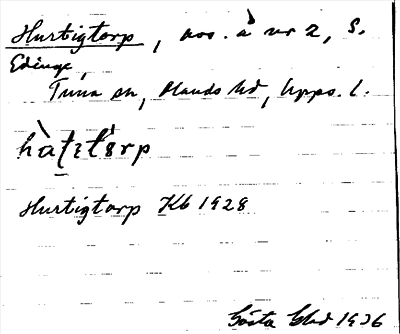 Hurtigtorp, avs. å nr 2, S.
Edinge,
Tuna sn, Olands hd, Upps. l.
Hurtigtorp Kb 1928
Gösta 1936